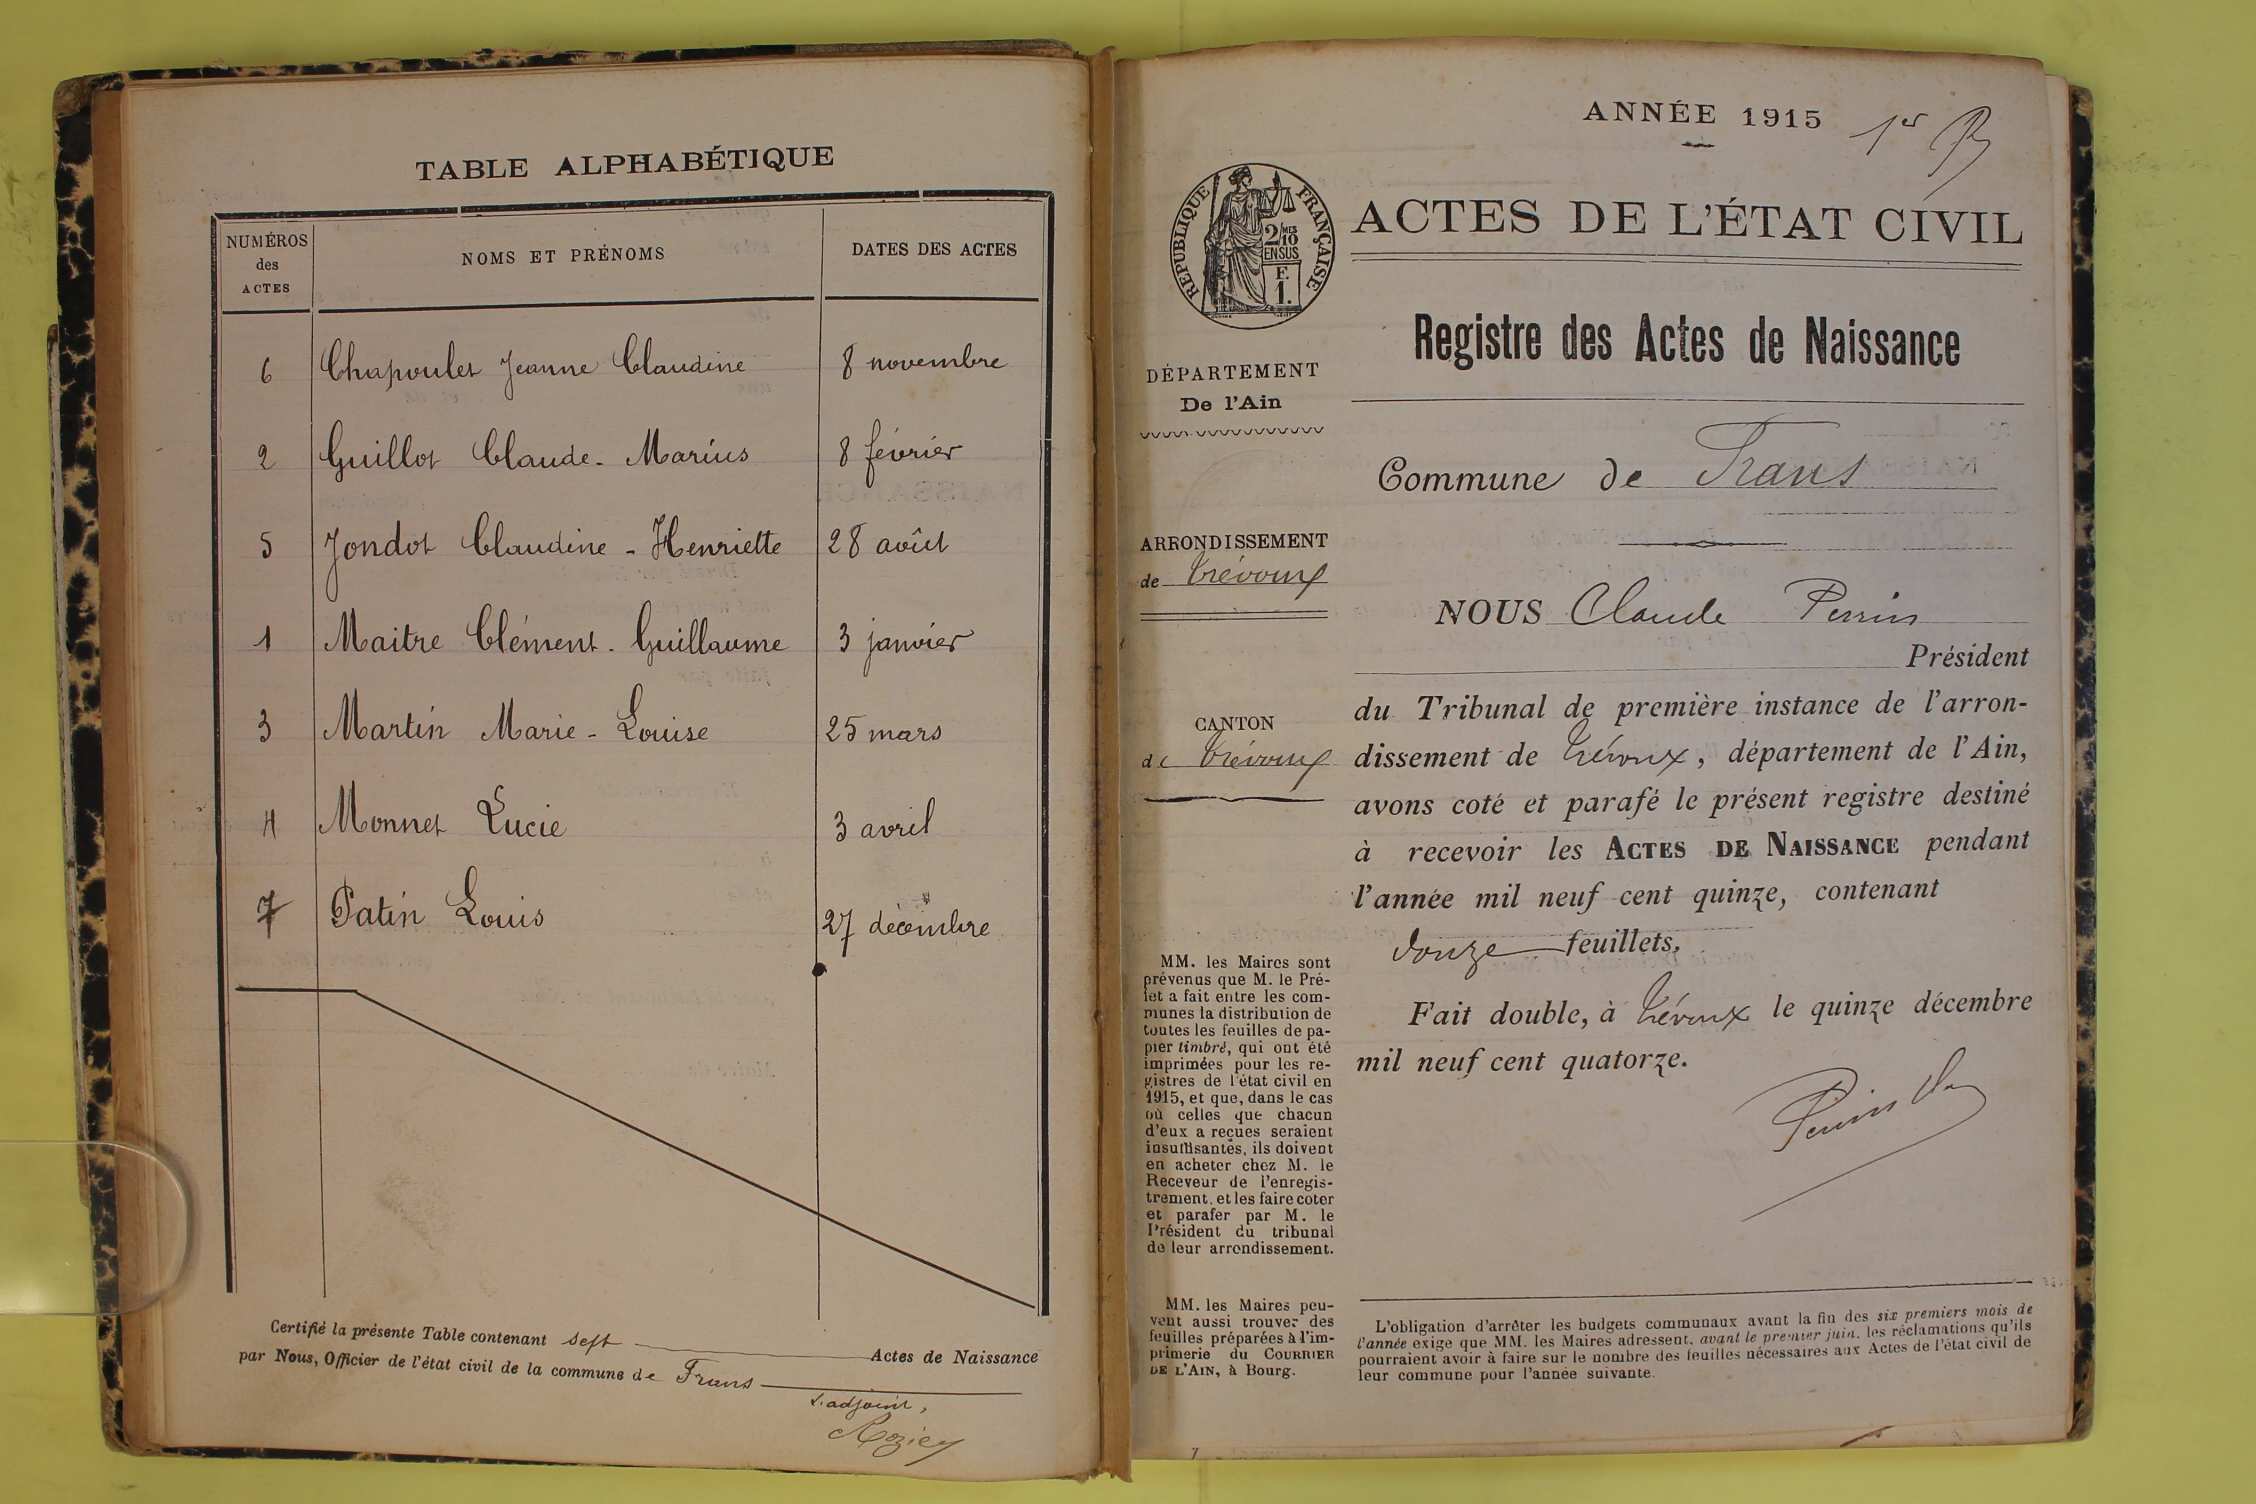 TABLE ALPHABÉTIQUE
NUMÉROS des ACTES NOMS ET PRÉNOMS DATES DES ACTES
6 Chapoulet Jeanne Claudine 8 novembre
2 Guillot Claude-Marius 8 février
5 Jondot Claudine-Henriette 28 août
1 Maitre Clément-Guillaume 3 janvier
3 Martin Marie-Louise 25 mars
4 Monnet Lucie 3 avril
7 Patin Louis 27 décembre
Certifié la présente Table contenant sept Actes de Naissance
par Nous, Officier de l'état civil de la commune de Frans
L'adjoint,
Rozier
ANNÉE 1915 1er
RÉPUBLIQUE FRANÇAISE
2/10 MES
EN SUS
F.
1.
ACTES DE L'ÉTAT CIVIL
Registre des Actes de Naissance
DÉPARTEMENT
De l'Ain
Commune de Frans
ARRONDISSEMENT
de Trévoux
CANTON
de Trévoux
NOUS Claude Perrin
Président
du Tribunal de première instance de l'arron-
dissement de Trévoux, département de l'Ain,
avons coté et parafé le présent registre destiné
à recevoir les ACTES DE NAISSANCE pendant
l'année mil neuf cent quinze, contenant
douze feuillets.
Fait double, à Trévoux le quinze décembre
mil neuf cent quatorze.
Perrin
MM. les Maires sont
prévenus que M. le Pré-
fet a fait entre les com-
munes la distribution de
toutes les feuilles de pa-
pier timbré, qui ont été
imprimées pour les re-
gistres de l'état civil en
1915, et que, dans le cas
où celles que chacun
d'eux a reçues seraient
insuffisantes, ils doivent
en acheter chez M. le
Receveur de l'enregis-
trement, et les faire coter
et parafer par M. le
Président du tribunal
de leur arrondissement.
MM. les Maires peu-
vent aussi trouver des
feuilles préparées à l'im-
primerie du COURRIER
DE L'AIN, à Bourg.
L'obligation d'arrêter les budgets communaux avant la fin des six premiers mois de
l'année exige que MM. les Maires adressent, avant le premier juin, les réclamations qu'ils
pourraient avoir à faire sur le nombre des feuilles nécessaires aux Actes de l'état civil de
leur commune pour l'année suivante.